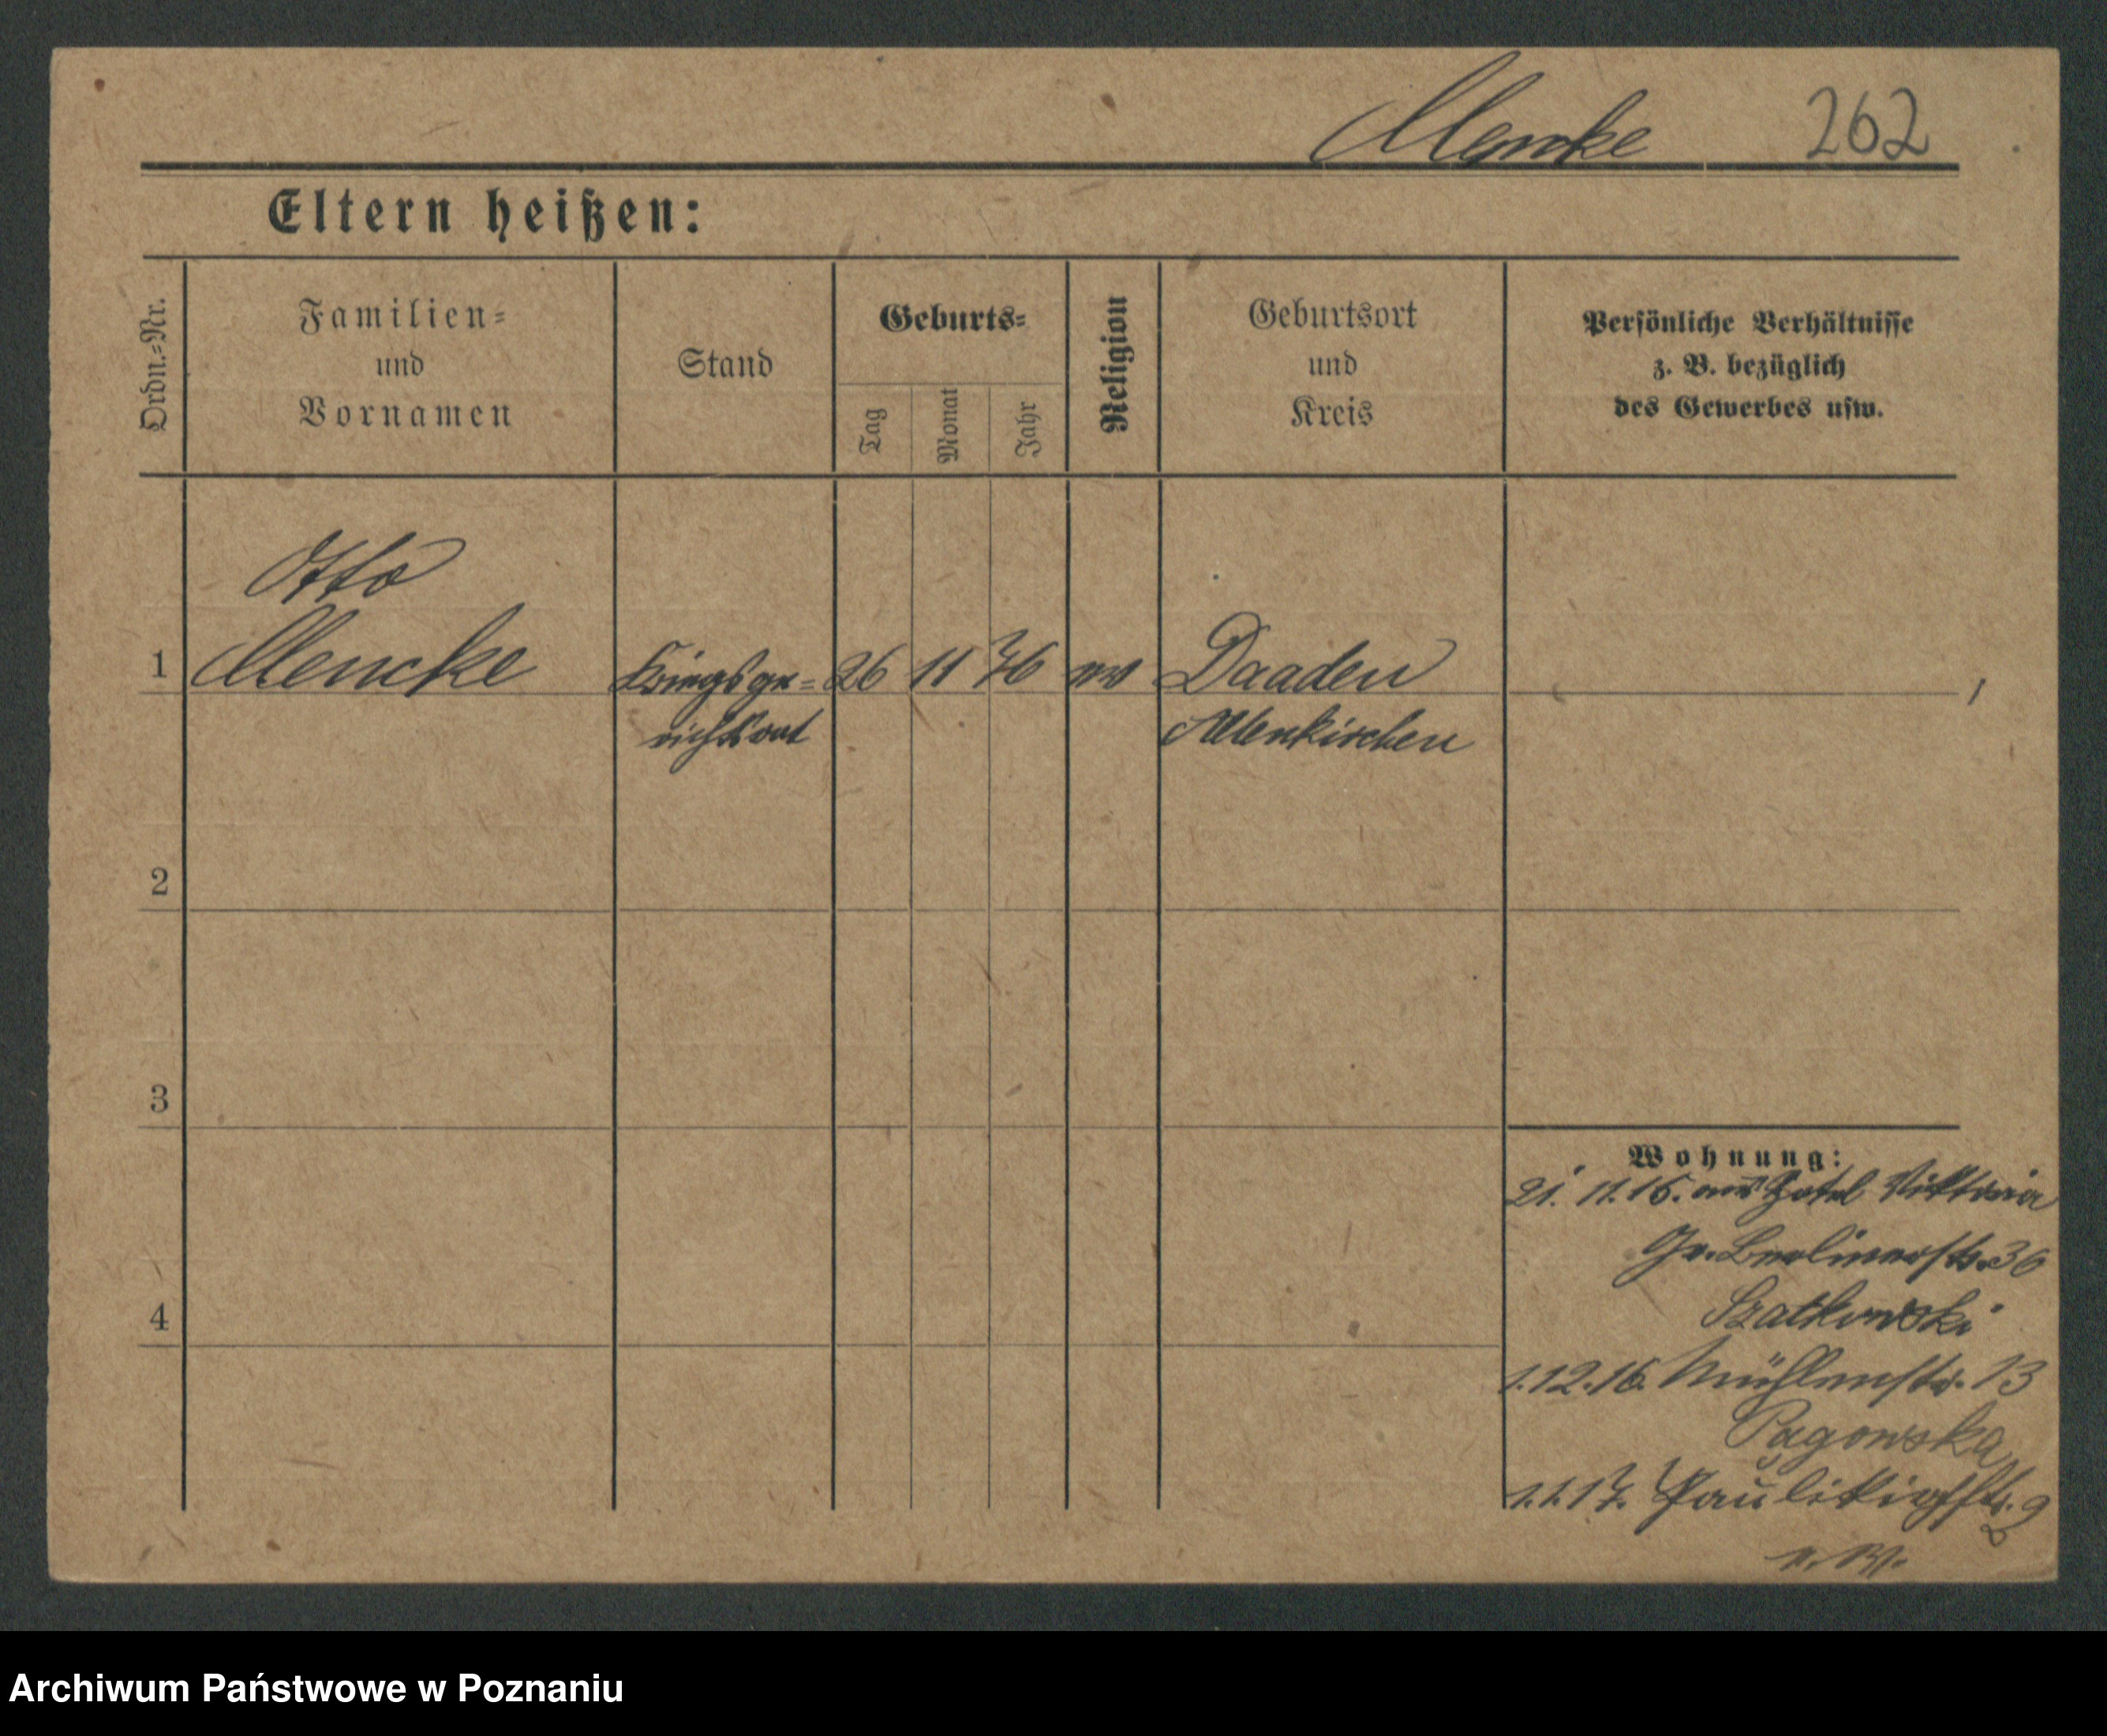 Mencke 262
Eltern heißen:
Ordn.-Nr.
Familien-
und
Vornamen
Stand
Geburts-
Tag
Monat
Jahr
Religion
Geburtsort
und
Kreis
Persönliche Verhältnisse
z. B. bezüglich
des Gewerbes usw.
Otto
1 Mencke Kriegsge- 26 11 76 ev Daaden
richtsrat Altenkirchen
2
3
4
Wohnung:
21. 11. 16. Hotel Viktoria
Gr. Berlinerstr. 36
Szatkowski
1.12.16. Mühlenstr. 13
Pągowska
1.1.17. Paulikirchstr. 9
Archiwum Państwowe w Poznaniu